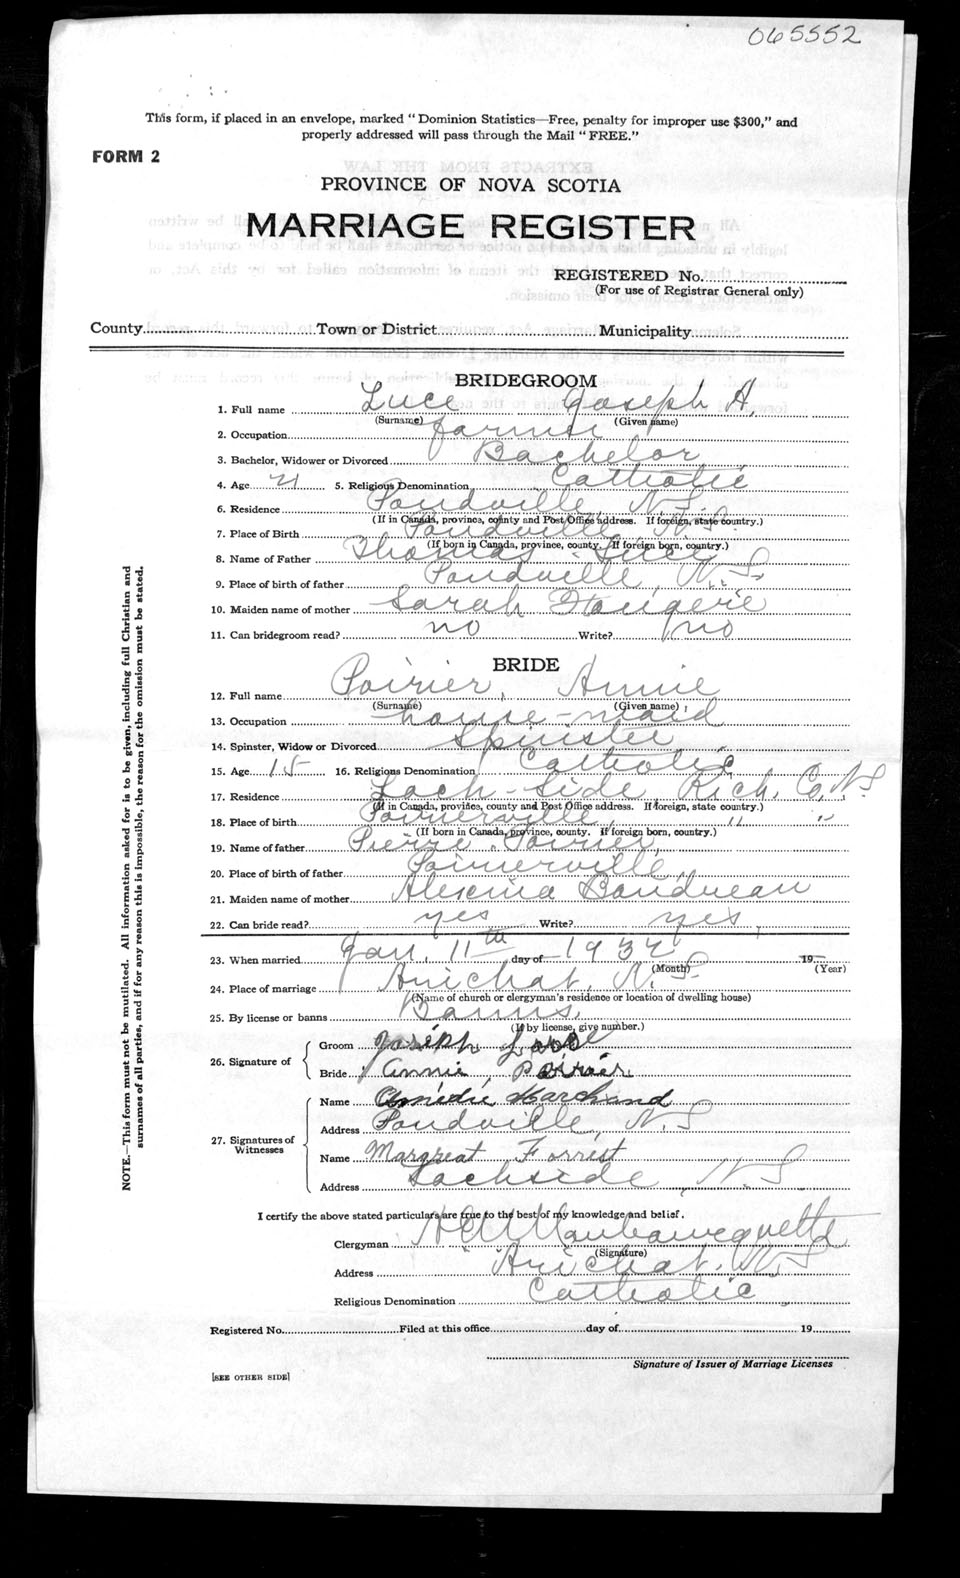 065552
This form, if placed in an envelope, marked "Dominion Statistics—Free, penalty for improper use $300," and
properly addressed will pass through the Mail "FREE."
FORM 2
PROVINCE OF NOVA SCOTIA
MARRIAGE REGISTER
REGISTERED No.
(For use of Registrar General only)
County Town or District Municipality
BRIDEGROOM
1. Full name Luce Joseph A.
(Surname) (Given name)
2. Occupation farmer
3. Bachelor, Widower or Divorced Bachelor
4. Age 21 5. Religious Denomination Catholic
6. Residence Poudville, N.S.
(If in Canada, province, county and Post Office address. If foreign, state country.)
7. Place of Birth Poudville N.S.
(If born in Canada, province, county. If foreign born, country.)
8. Name of Father Thomas Luce
9. Place of birth of father Poudville, N.S.
10. Maiden name of mother Sarah
11. Can bridegroom read? no Write? no
BRIDE
12. Full name Poirier, Annie
(Surname) (Given name)
13. Occupation house-maid
14. Spinster, Widow or Divorced Spinster
15. Age 15 16. Religious Denomination Catholic
17. Residence Loch-Side, Rich. Co, N.S
(If in Canada, province, county and Post Office address. If foreign, state country.)
18. Place of birth Poirierville, " "
(If born in Canada, province, county. If foreign born, country.)
19. Name of father Pierre Poirier,
20. Place of birth of father Poirierville,
21. Maiden name of mother Boudreau
22. Can bride read? yes Write? yes
23. When married Jan. 11th day of 19
(Month) (Year)
24. Place of marriage Arichat, N.S.
(Name of church or clergyman's residence or location of dwelling house)
25. By license or banns Banns.
(If by license, give number.)
26. Signature of
Groom Joseph
Bride Annie Poirier
27. Signatures of
Witnesses
Name Amédie Marchand
Address Poudville, N.S
Name Margreat Forrest
Address Lochside, N.S
I certify the above stated particulars are true to the best of my knowledge and belief.
Clergyman
(Signature)
Address Arichat. N.S
Religious Denomination Catholic
Registered No. Filed at this office day of 19
Signature of Issuer of Marriage Licenses
[SEE OTHER SIDE]
NOTE.—This form must not be mutilated. All information asked for is to be given, including full Christian and
surnames of all parties, and if for any reason this is impossible, the reason for the omission must be stated.